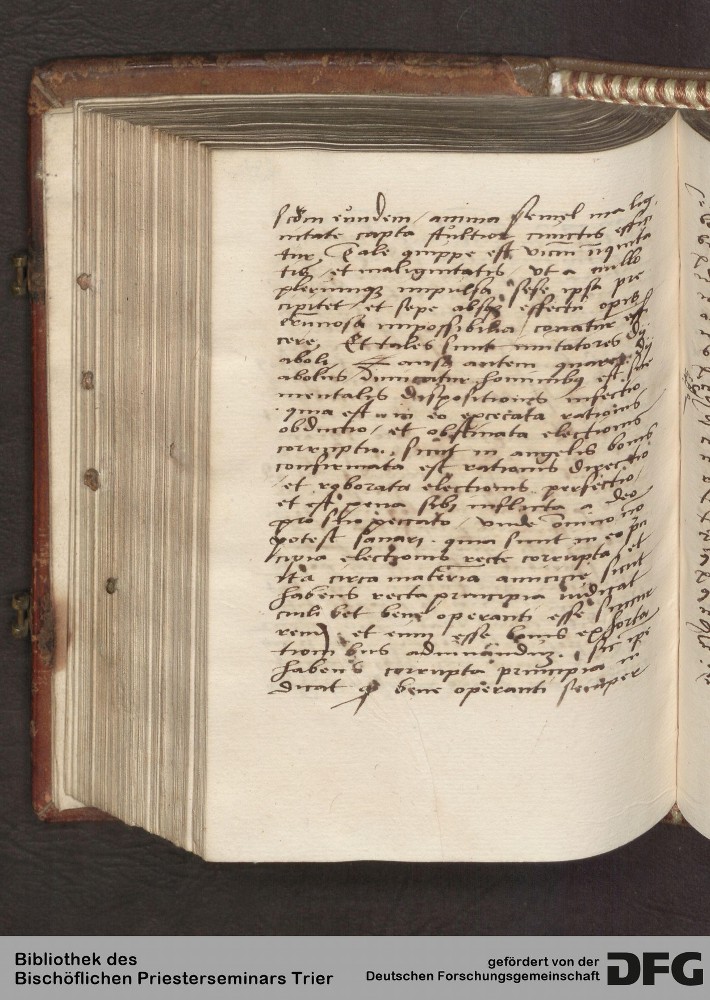 scdm eundem, anima semel malig,
nitate capta stultior cunctis effici
tur, Tale quippe est vicium iniquita
tis, et malignitatis, vt a nullo
plerumqz impulsa sese ipsa pre
cipitet, et sepe absqz effectu opis
impossibilia conatur effi
cere, Et tales sunt imitatores dy
aboli, causa autem quare dy
abolus hominibus est
mentalis dispositionis infectio
quia est in eo excecata rationis
obductio, et obstinata electionis
corruptio. sicut in angelis bonis
confirmata est rationis directio
et roborata electionis perfectio,
et est pena sibi inflicta a deo
pro suo peccato, vnde omnino no
potest sanari. quia sunt in eo prin
cipia electionis recte corrupta, et
ita circa materia sicut
habens recta principia iudicat
cuili bet bene operanti esse succur
rend, et eum esse bonis exhorta
tioni bus adiuuandum. sic ipe
habens corrupta principia iu
dicat qz bene operanti semper
Bibliothek des
Bischöflichen Priesterseminars Trier
gefördert von der
Deutschen Forschungsgemeinschaft
DFG